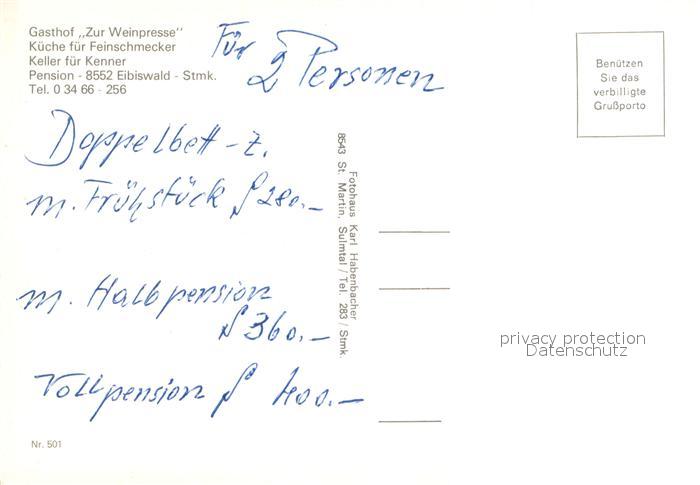 Gasthof „Zur Weinpresse"
Küche für Feinschmecker
Keller für Kenner
Pension - 8552 Eibiswald - Stmk.
Tel. 0 34 66 - 256
Für
2 Personen
Benützen
Sie das
verbilligte
Grußporto
Doppelbett-z.
m. Frühstück S 280.–
m. Halbpension
S 360.–
Vollpension S 400.–
Fotohaus Karl Habenbacher
8543 St. Martin, Sulmtal / Tel. 283 / Stmk.
privacy protection
Datenschutz
Nr. 501